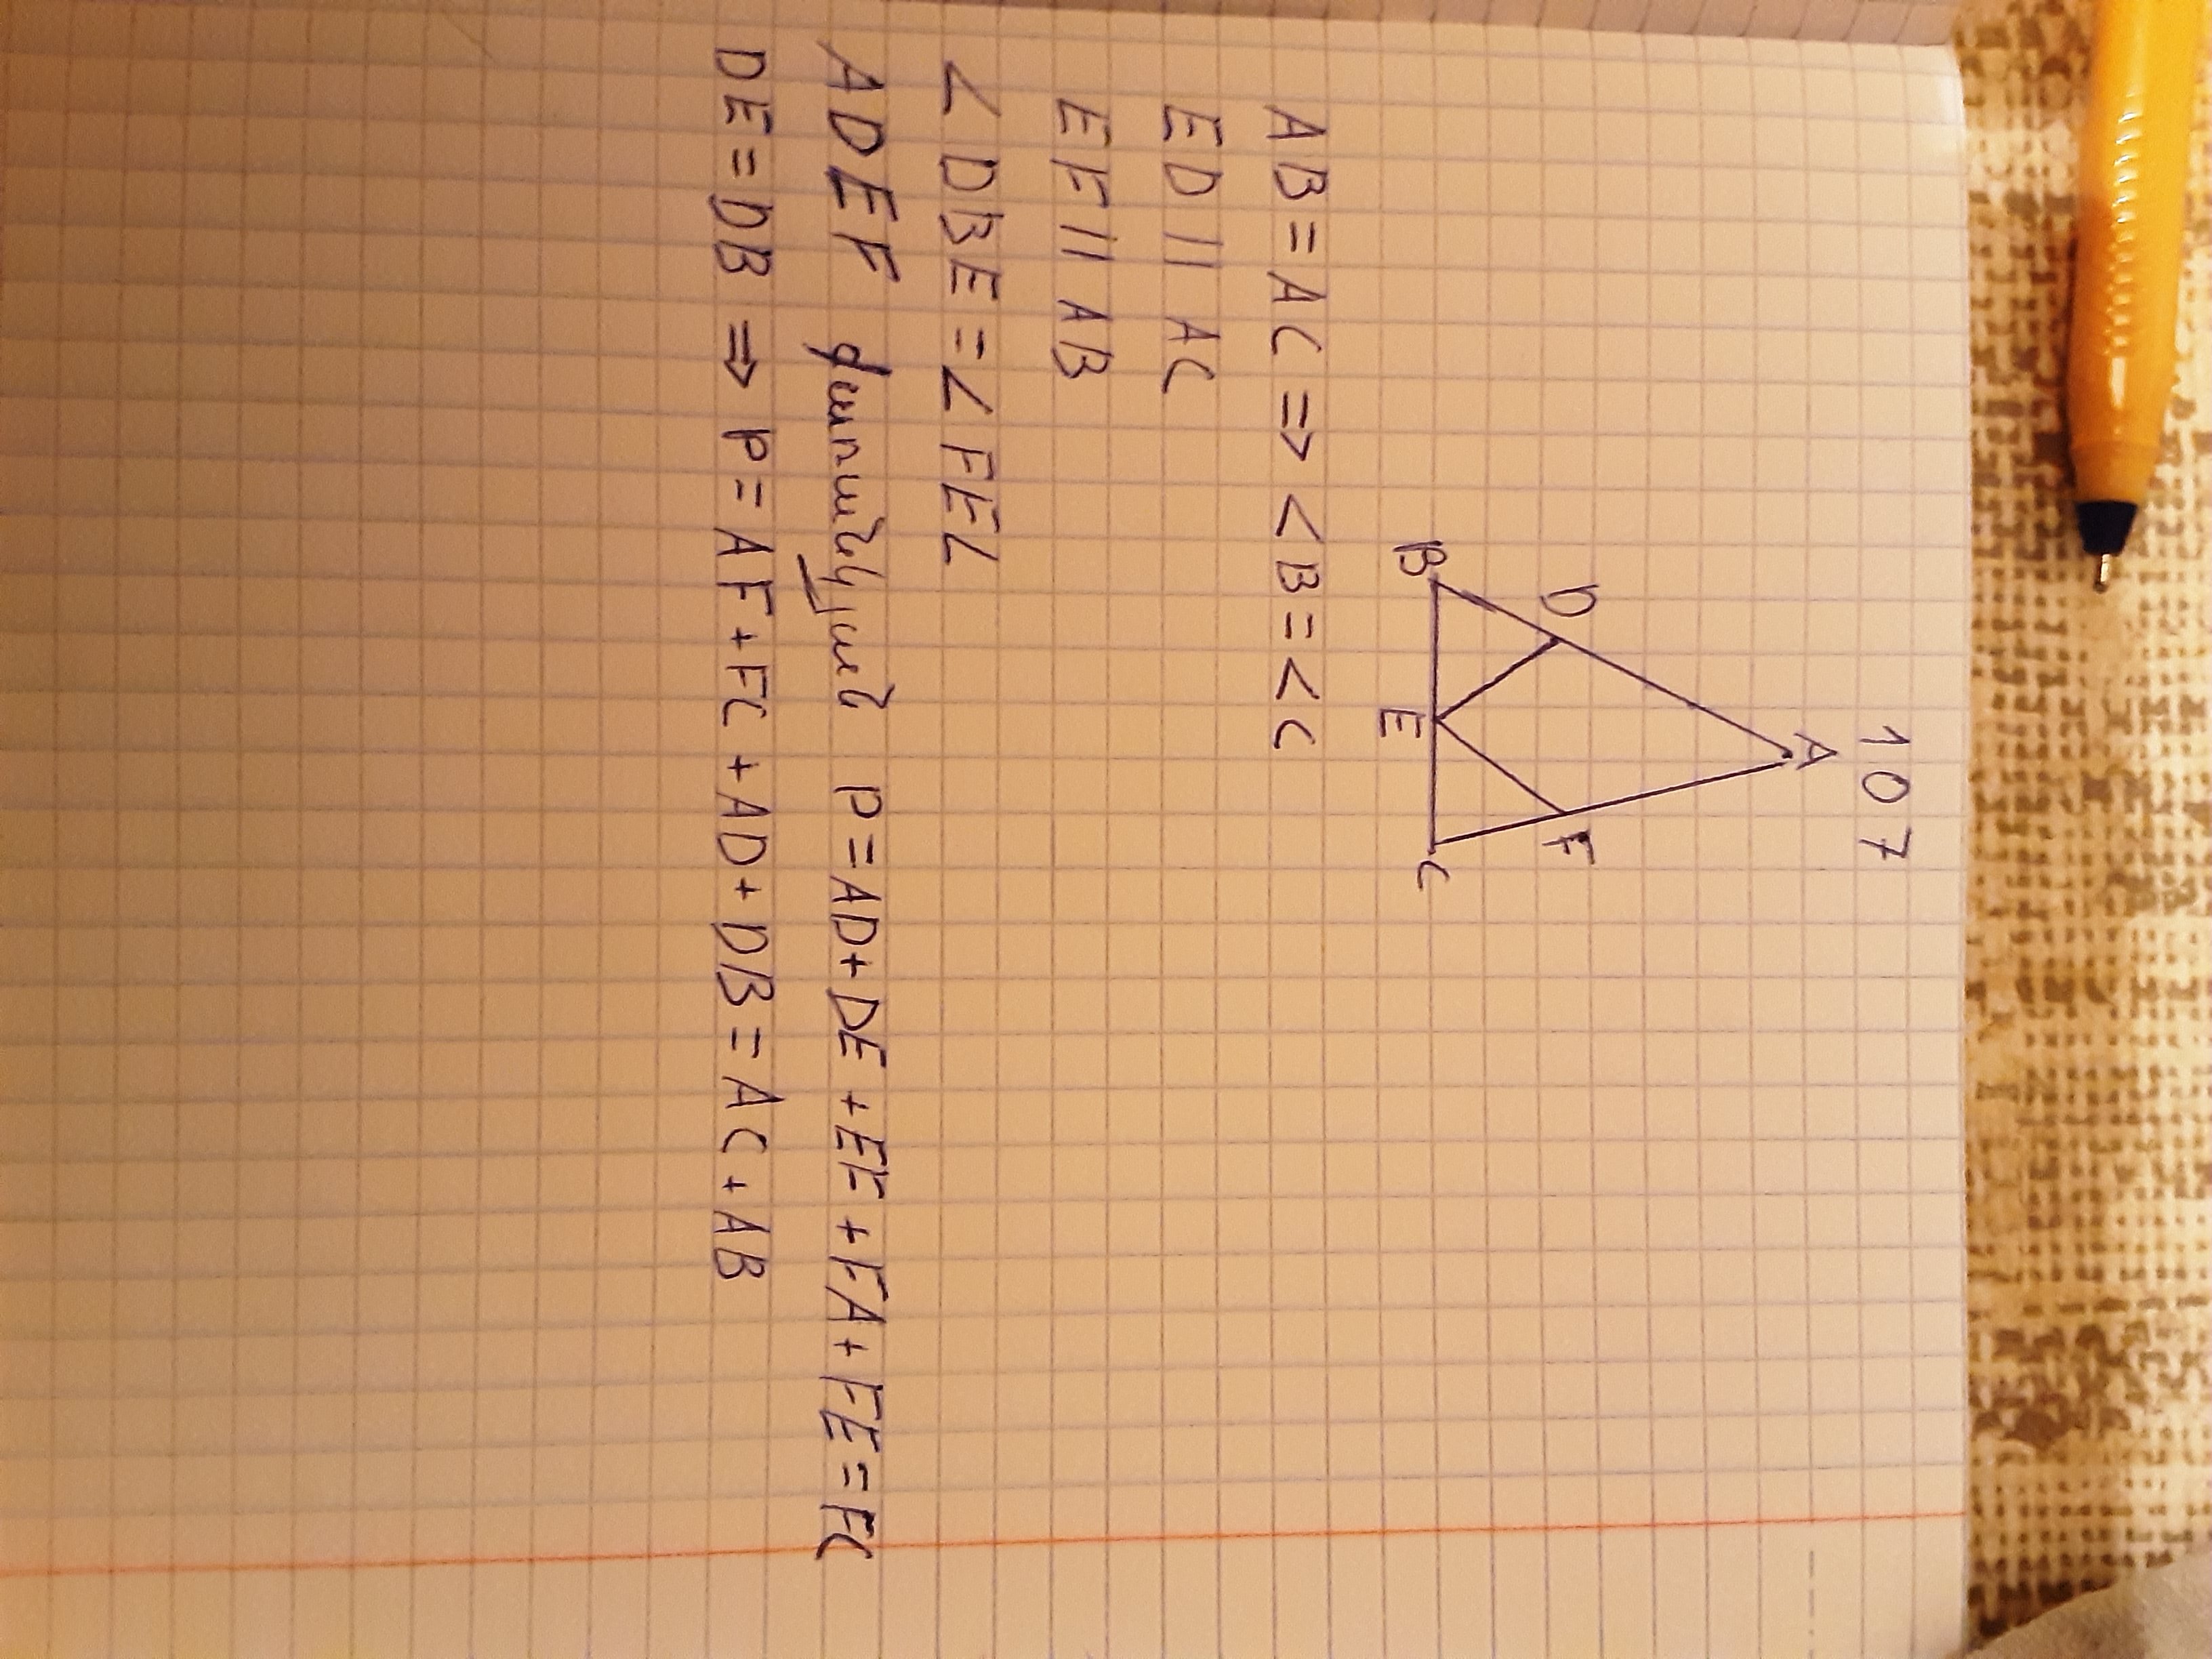 107
A
D
F
B
E
C
AB = AC => <B = <C
ED || AC
EF || AB
∠DBE = ∠FEL
ADEF P = AD + DE + EF + FA + FE = FC
DE = DB => P = AF + FC + AD + DB = AC + AB